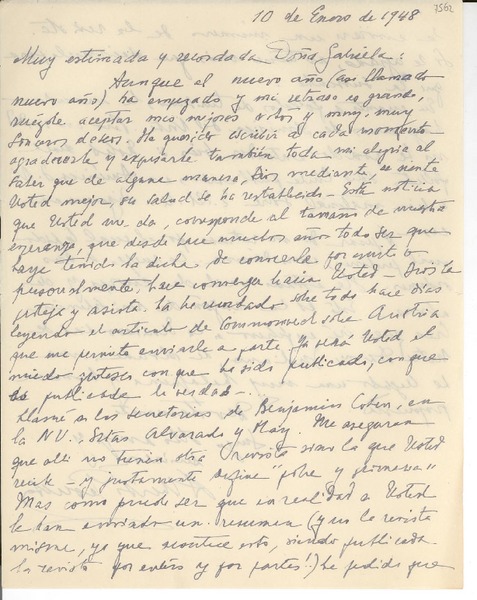 7562
10 de Enero de 1948
Muy estimada y recordada Doña Gabriela:
Aunque el nuevo año (así llamado
nuevo año) ha empezado y mi retraso es grande,
ruégole aceptar mis mejores votos y muy, muy
sinceros deseos. He querido escribir a cada momento
agradecerle y expresarle también toda mi alegría al
saber que de alguna manera, Dios mediante, se siente
Usted mejor, su salud se ha restablecido - Esta noticia
que Usted me da, corresponde al tamaño de nuestra
esperanza, que desde hace muchos años todo ser que
haya tenido la dicha de conocerla por escrito o
personalmente, hace converger hacia Usted - Dios la
proteja y asista. La he recordado sobre todo hace días
leyendo el artículo de Commonweal sobre Austria
que me permito enviarle a parte. Ya verá Usted el
miedo con que ha sido publicado, con que
se publica de la verdad -
Llamé a los secretarios de Benjamin Cohen, en
la NU. Srtas Alvarado y May. Me aseguran
que allí no tienen otra revista sino la que Usted
recibe - y justamente define "pobre y primeriza"
Mas como puede ser que en realidad a Usted
le dan enviando un resumen (y no la revista
misma, ya que acontece esto, siendo publicada
la revista por entero y por partes!) he pedido que